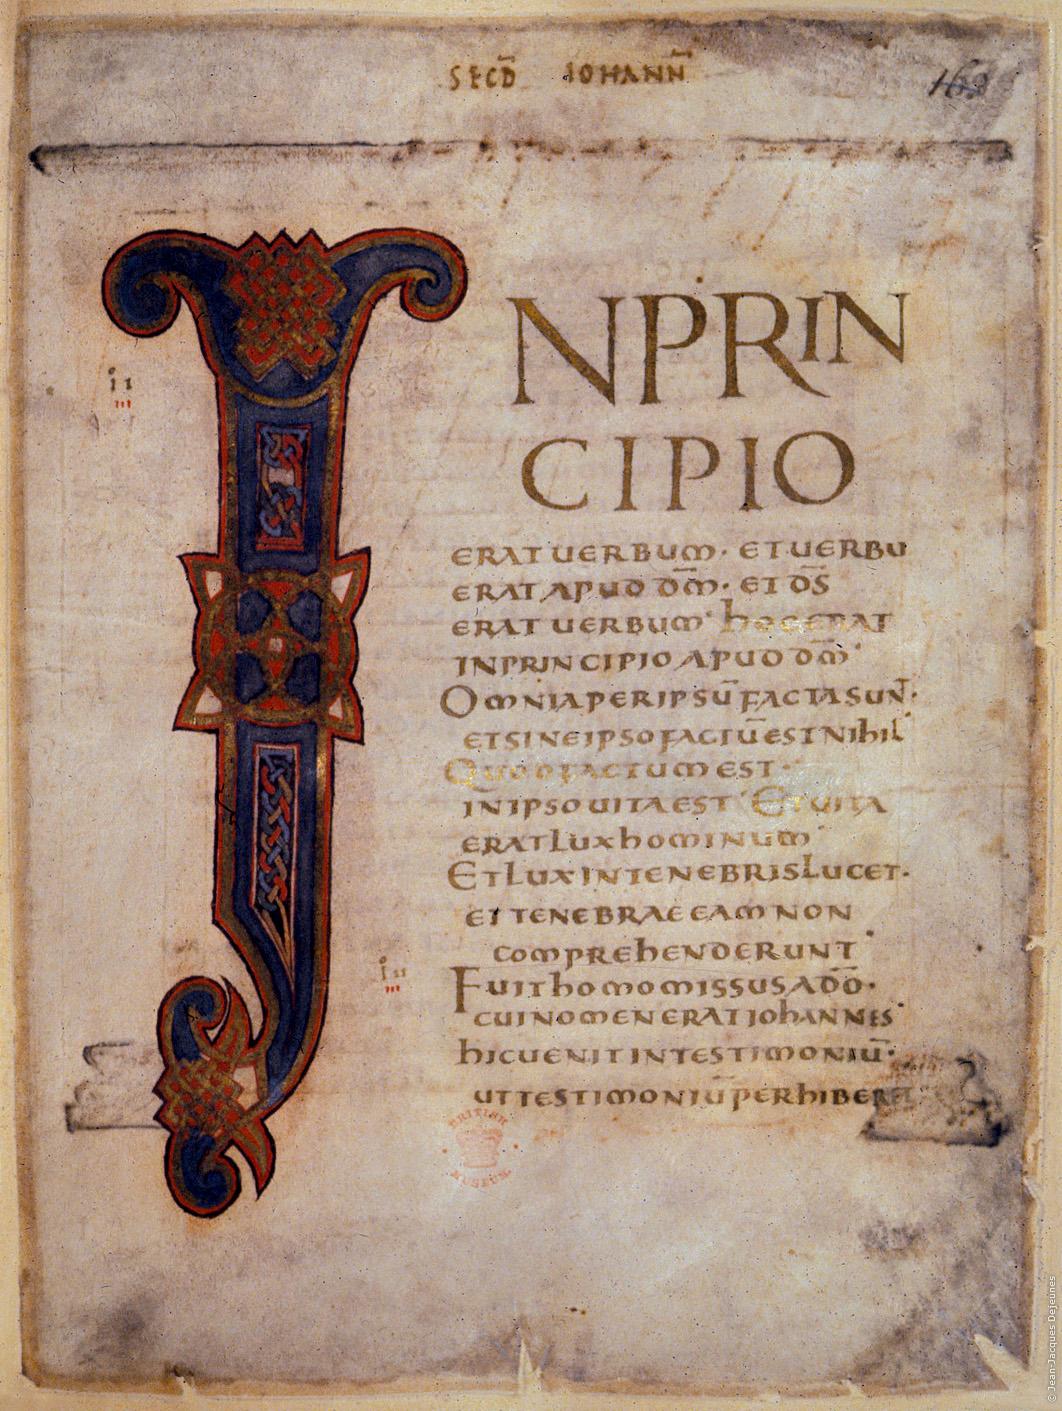 SECD̄ IOHANN̄
163
INPRIN
CIPIO
ERAT UERBUM· ET UERBŪ
ERAT APUD DM̄· ET DS̄
ERAT UERBUM· hOC ERAT
IN PRINCIPIO APUD DM̄·
OMNIA PER IPSŪ FACTA SUNT·
ET SINE IPSO FACTŪ EST NIhIL·
QUOD FACTUM EST·
IN IPSO UITA EST· ET UITA
ERAT LUX hOMINUM·
ET LUX IN TENEBRIS LUCET·
ET TENEBRAE EAM NON
COMPREhENDERUNT·
FUIT hOMO MISSUS A DŌ·
CUI NOMEN ERAT IOhANNES·
hIC UENIT IN TESTIMONIŪ·
UT TESTIMONIŪ PERhIBERET
ii
iii
iii
iii
BRITISH MUSEUM
© Jean-Jacques Dejeunes